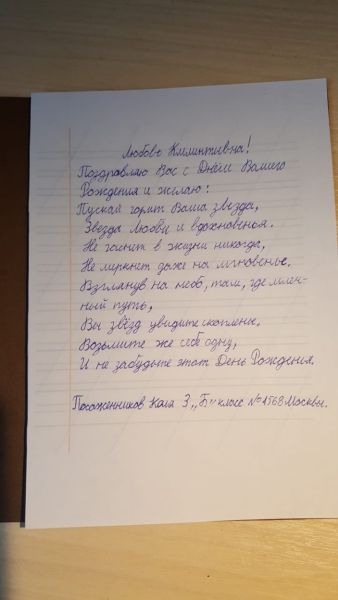 Любовь Климентьевна!
Поздравляю Вас с Днём Вашего
Рождения и желаю:
Пускай горит Ваша звезда,
Звезда Любви и вдохновенья.
Не гаснет в жизни никогда,
Не меркнет даже на мгновенье.
Взглянув на небо, там, где млеч-
ный путь,
Вы звёзд увидите скопленье.
Возьмите же себе одну,
И не забудьте этот День Рождения.
Коля 3 „Б" класс №1568 Москвы.